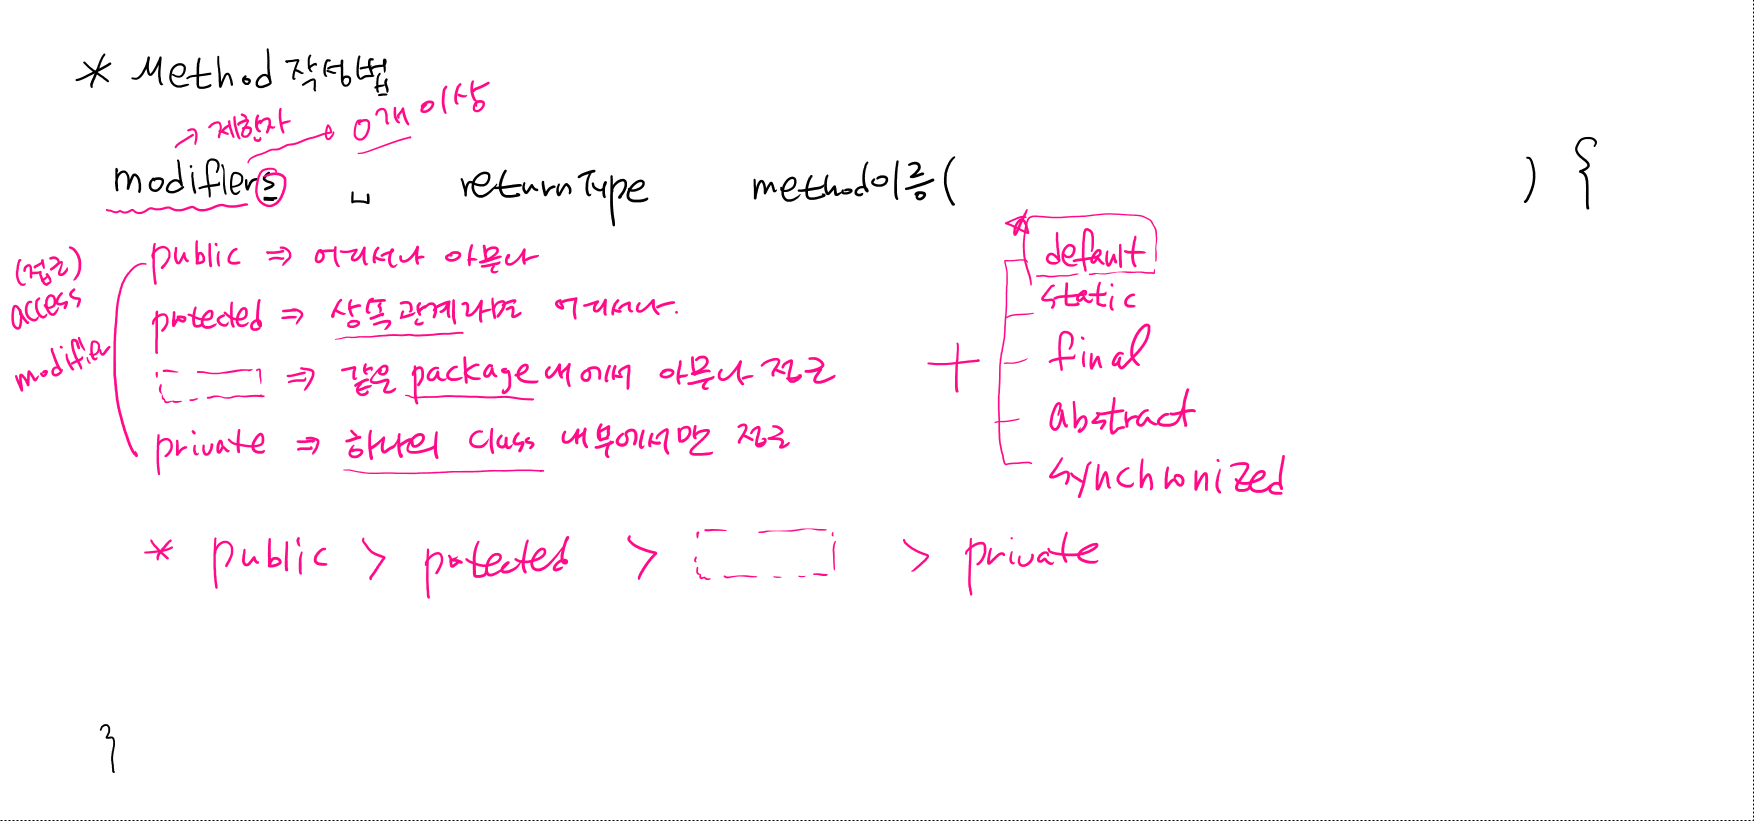 * Method 작성법
→ 제한자 → 0개 이상
modifiers ␣ returnType method이름( ) {
(접근) access modifier
public ⇒ 어디서나 아무나
protected ⇒ 상속관계라면 어디서나.
⇒ 같은 package 내에서 아무나 접근
private ⇒ 하나의 class 내부에서만 접근
+
* default
static
final
abstract
synchronized
* public > protected > > private
}